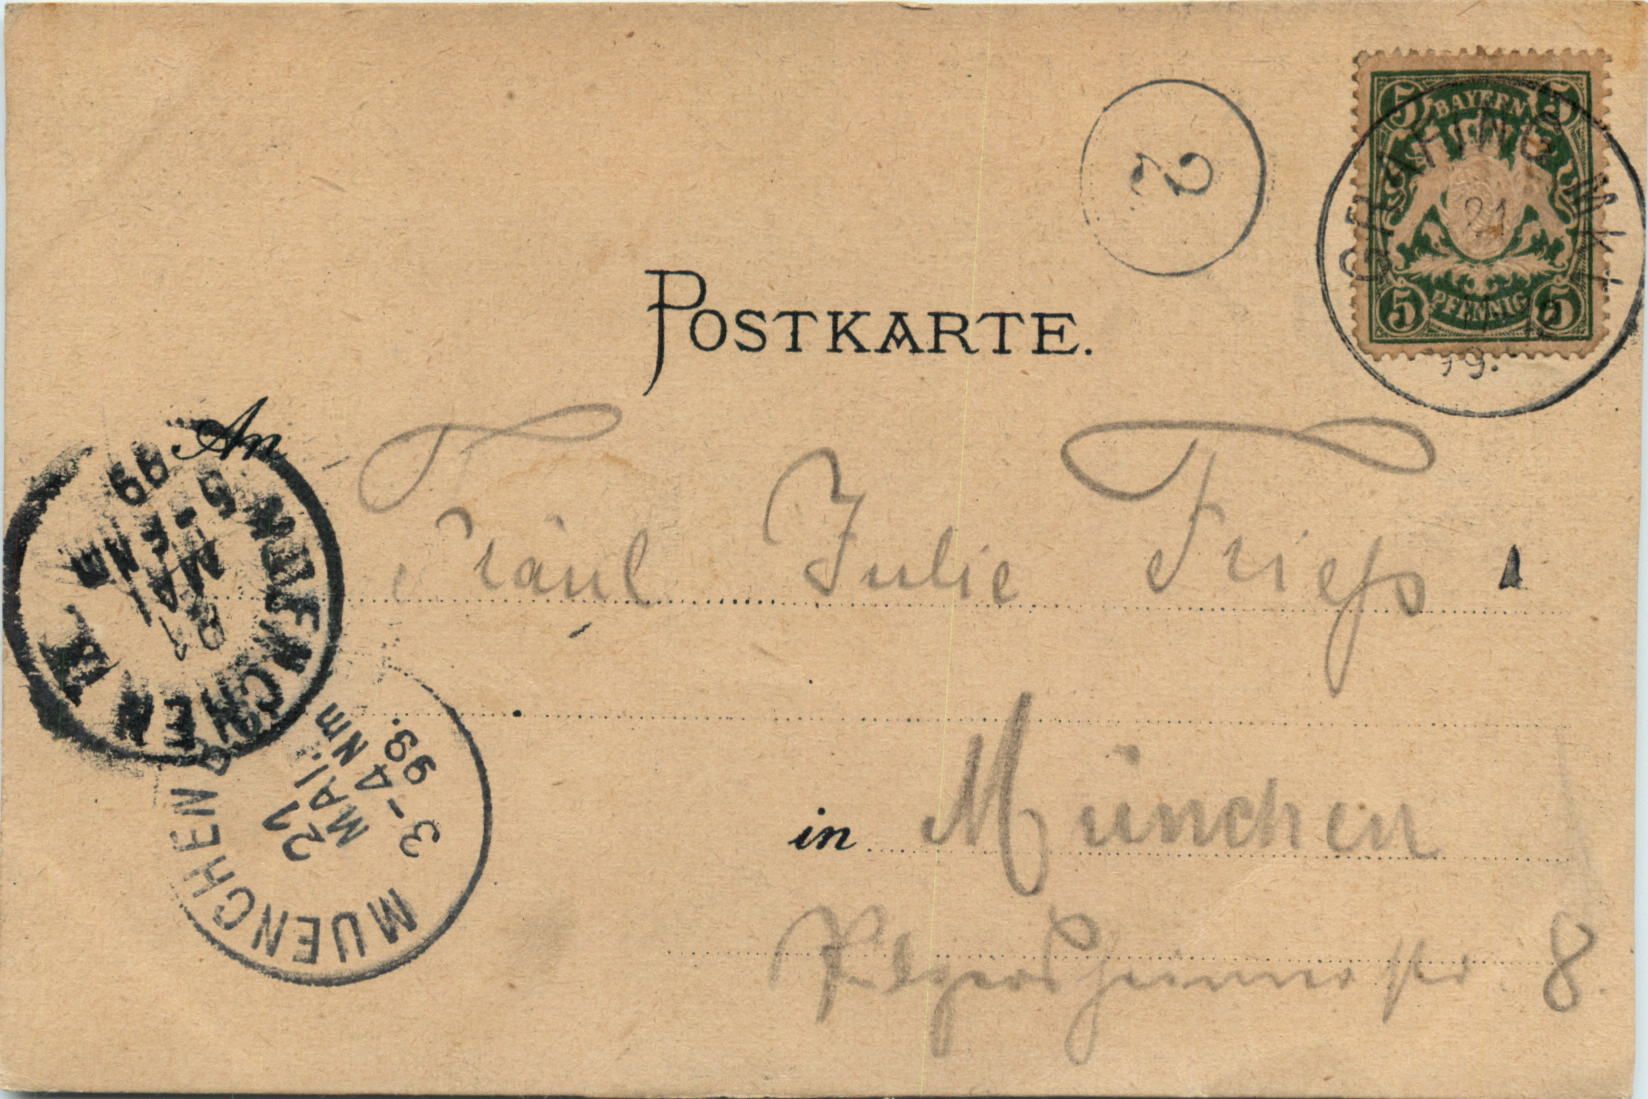 5 BAYERN 5
5 PFENNIG 5
GRAFING MKT.
21
99.
2
POSTKARTE.
An
Fräul Julie Frieß
MUENCHEN
21
MAI
3-4 Nm
99.
MUENCHEN IX.
21
MAI
99
in München
Pilgersheimerstr. 8.